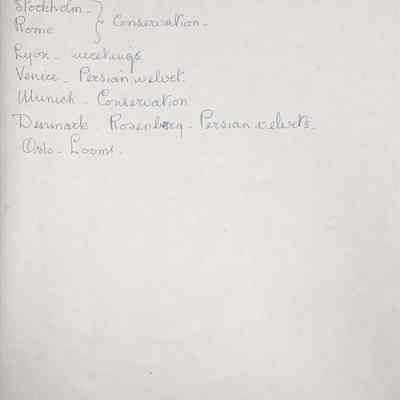 Stockholm -
Rome } Conservation -
Lyon - meetings
Venice - Persian velvet.
Munich - Conservation
Denmark - Rosenborg - Persian velvets.
Oslo - Looms.